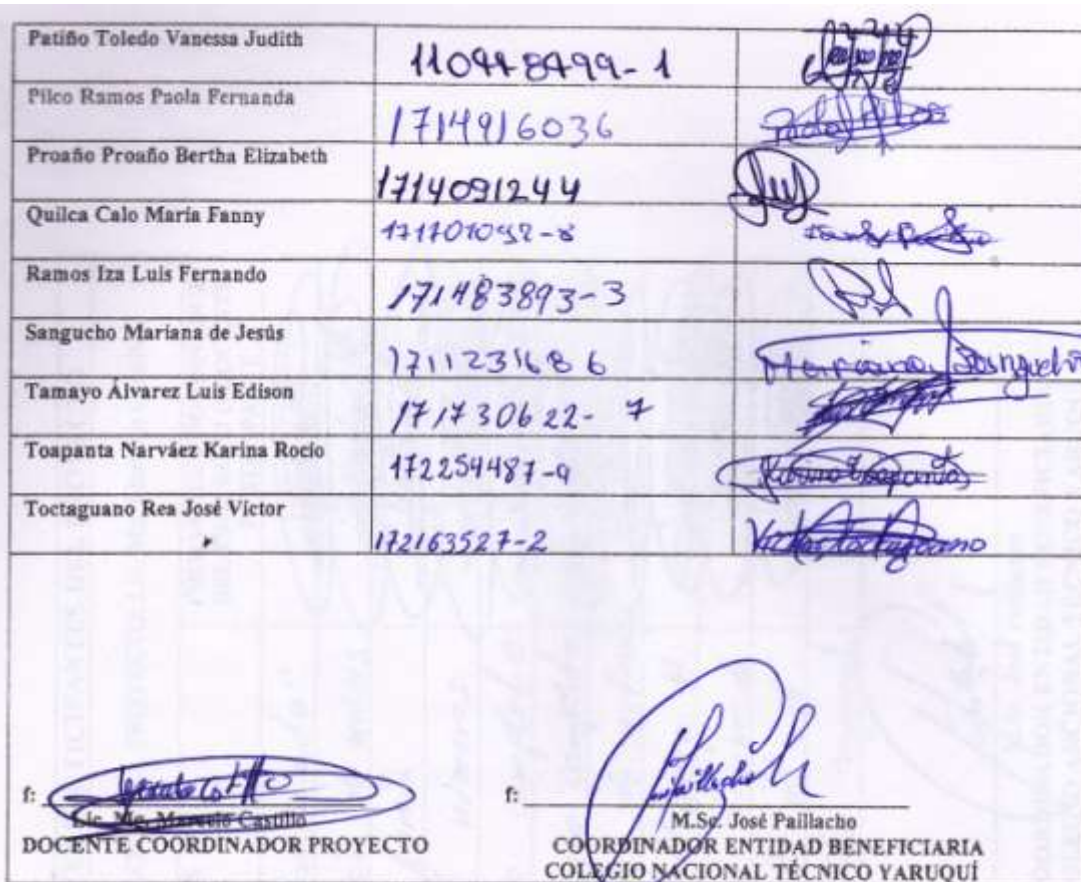 Patiño Toledo Vanessa Judith 110448499-1
Pilco Ramos Paola Fernanda 1714916036
Proaño Proaño Bertha Elizabeth 1714091244
Quilca Calo María Fanny 171701092-8
Ramos Iza Luis Fernando 171483893-3
Sangucho Mariana de Jesús 1711231686 Mariana Sangucho
Tamayo Álvarez Luis Edison 171730622-7
Toapanta Narváez Karina Rocío 172254487-9 Karina Toapanta
Toctaguano Rea José Víctor 172163527-2
f: f:
Lic. Mg. Marcelo Castillo M.Sc. José Paillacho
DOCENTE COORDINADOR PROYECTO COORDINADOR ENTIDAD BENEFICIARIA
COLEGIO NACIONAL TÉCNICO YARUQUÍ